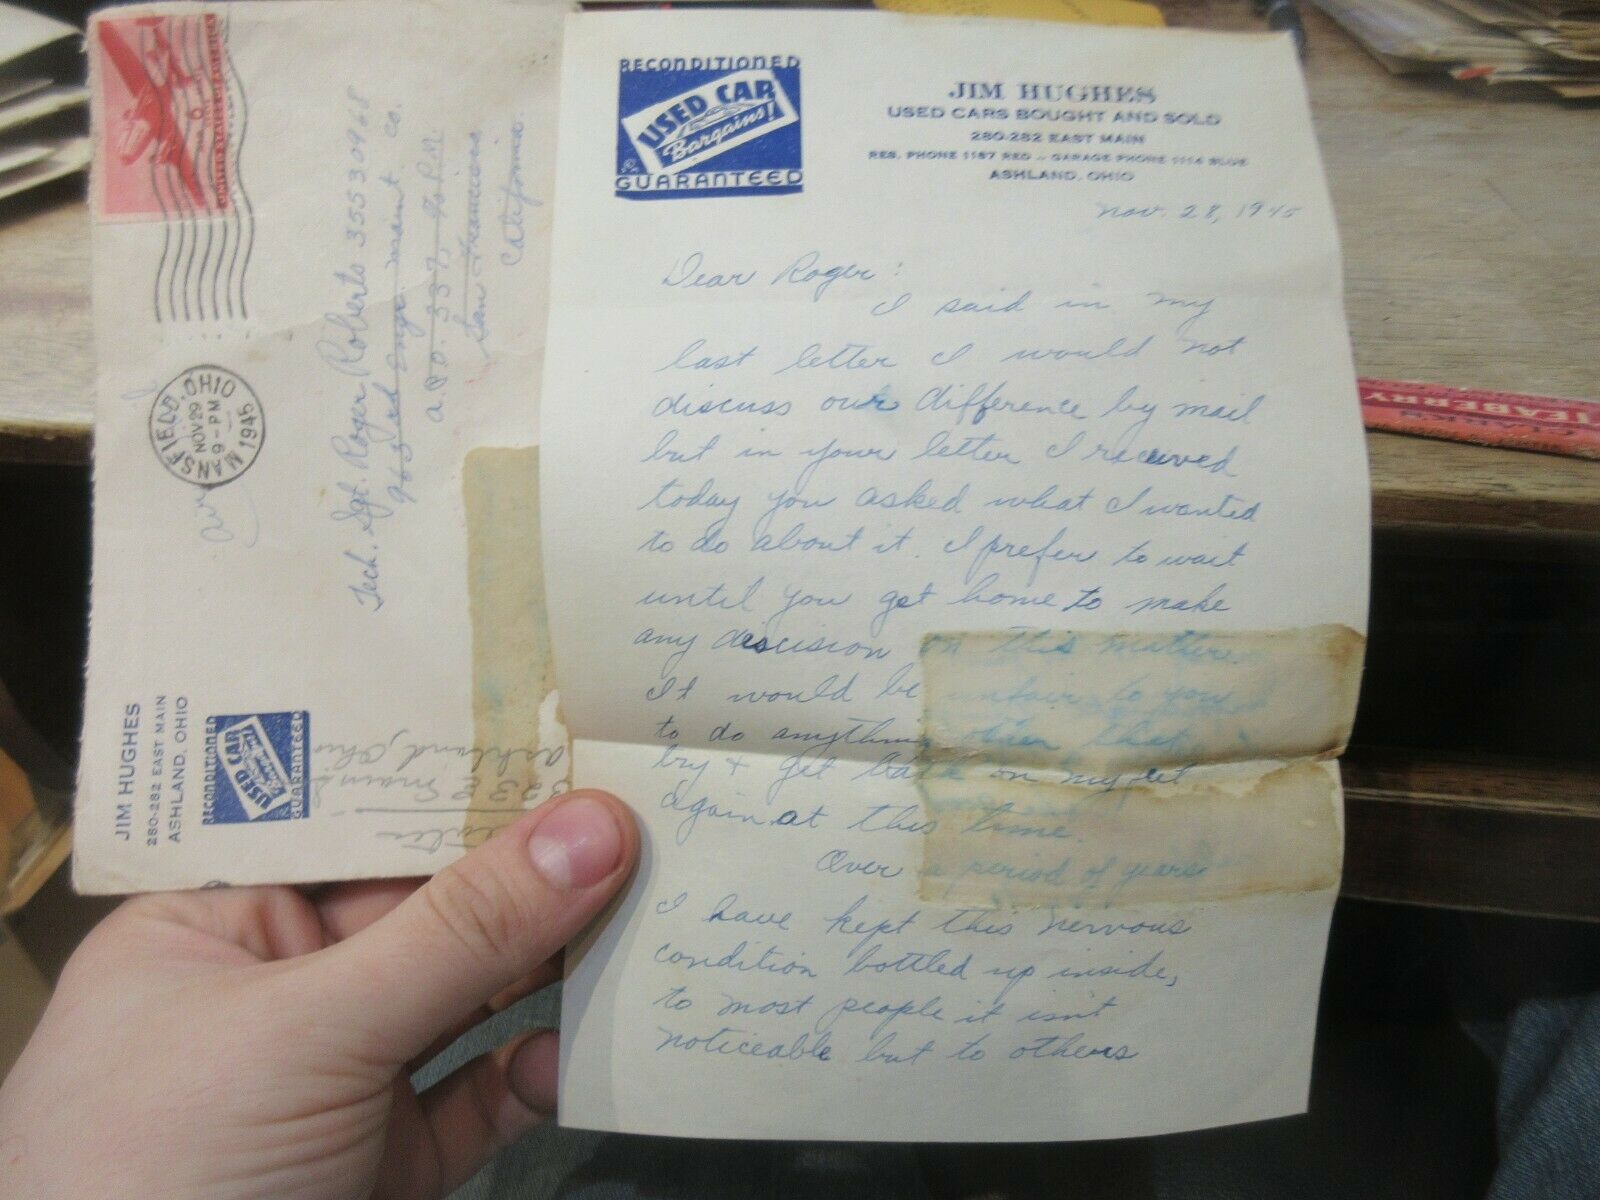 UNITED STATES OF AMERICA
6
MANSFIELD, OHIO
NOV 29
9 - PM
1945
Tech. Sgt. Roger Roberts 35530968
963rd Engr. maint co.
San Francisco
California.
JIM HUGHES
280-282 EAST MAIN
ASHLAND, OHIO
RECONDITIONED
USED CAR
Bargains!
GUARANTEED
Ashland, Ohio
RECONDITIONED
USED CAR
Bargains!
GUARANTEED
JIM HUGHES
USED CARS BOUGHT AND SOLD
280-282 EAST MAIN
RES. PHONE 1187 RED - GARAGE PHONE 1114 BLUE
ASHLAND, OHIO
Nov. 28, 1945
Dear Roger:
I said in my
last letter I would not
discuss our difference by mail
but in your letter I received
today you asked what I wanted
to do about it. I prefer to wait
until you get home to make
any discision on this matter.
It would be unfair to you
to do anything other that
try + get back on my
again at this time.
Over a period of years
I have kept this nervous
condition bottled up inside,
to most people it isn't
noticeable but to others
TEABERRY
CLARK'S